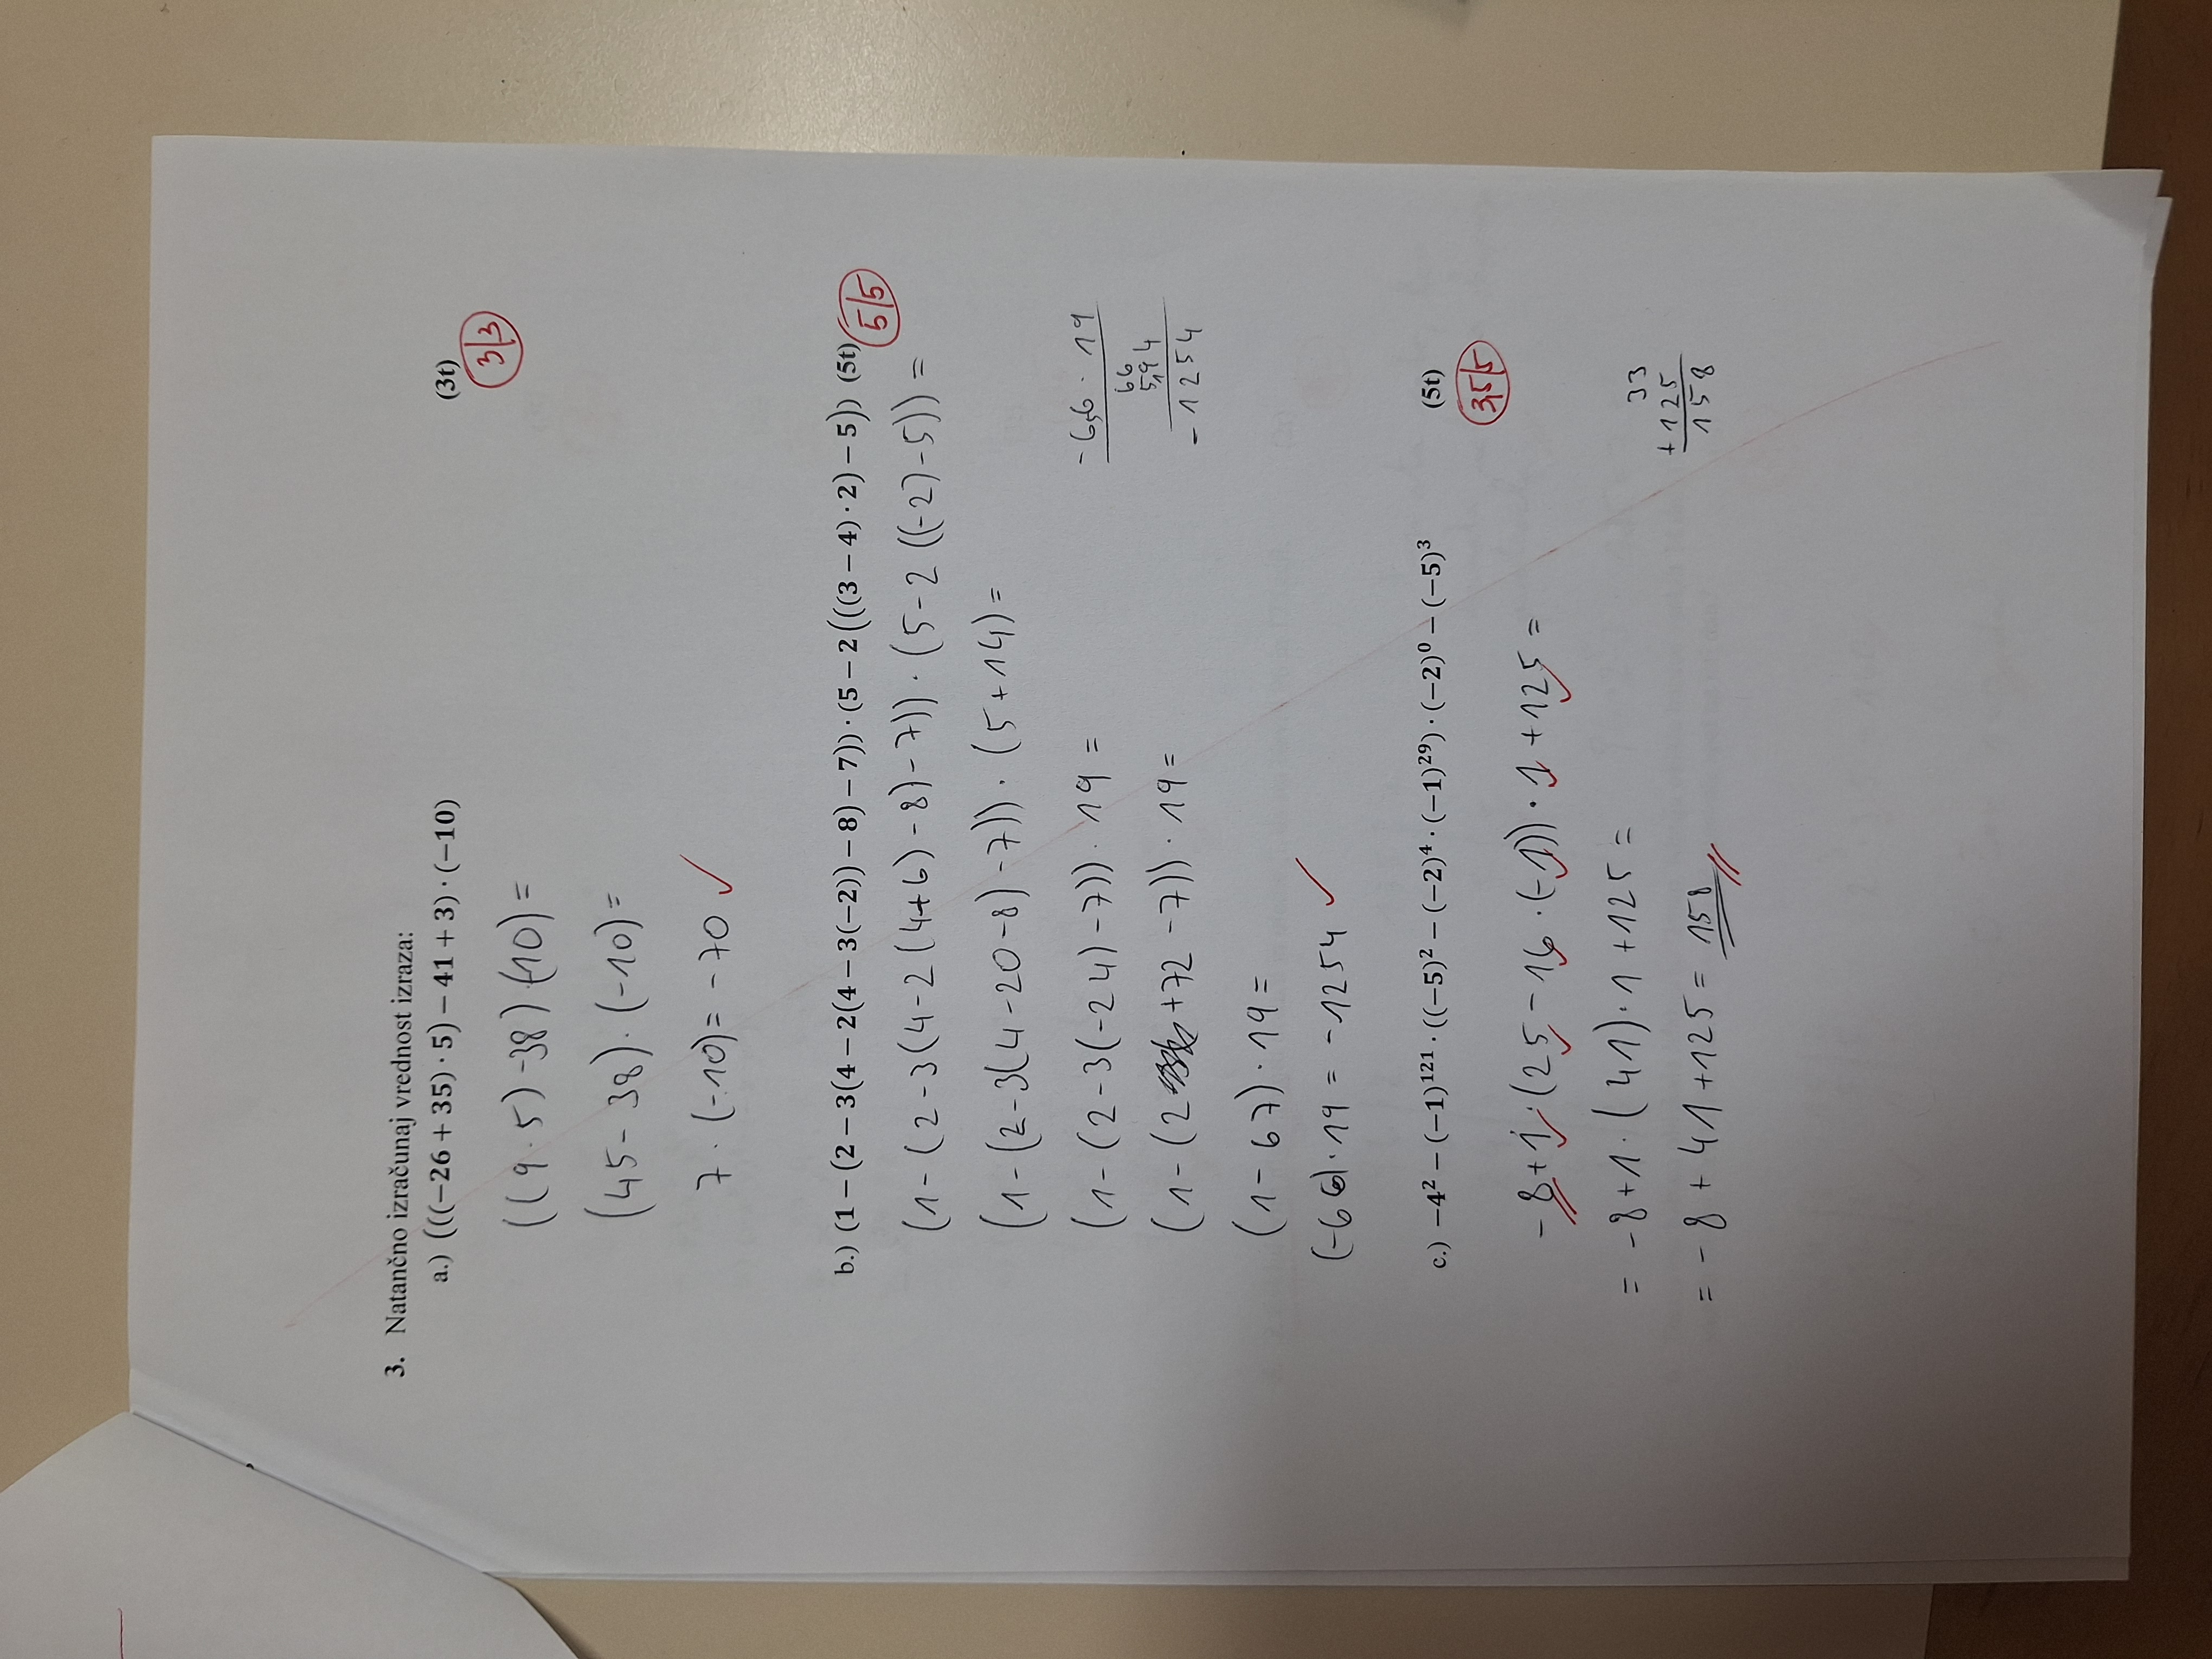 3. Natančno izračunaj vrednost izraza:
a.) (((−26 + 35) · 5) − 41 + 3) · (−10) (3t)
3|3
((9 · 5) -38) · (-10) =
(45 - 38) · (-10) =
7 · (-10) = -70 ✓
b.) (1 − (2 − 3(4 − 2(4 − 3(−2)) − 8) − 7)) · (5 − 2(((3 − 4) · 2) − 5)) (5t)
5|5
(1 - (2 - 3(4 - 2(4+6) - 8) - 7)) · (5 - 2((-2) - 5)) =
(1 - (2 - 3(4 - 20 - 8) - 7)) · (5 + 14) =
(1 - (2 - 3(-24) - 7)) · 19 =
(1 - (2 +72 - 7)) · 19 =
(1 - 67) · 19 =
(-66) · 19 = -1254 ✓
-66 · 19
66
594
-1254
c.) −4² − (−1)¹²¹ · ((−5)² − (−2)⁴ · (−1)²⁹) · (−2)⁰ − (−5)³ (5t)
3,5|5
-8 + 1 · (25 - 16 · (-1)) · 1 + 125 =
= -8 + 1 · (41) · 1 + 125 =
= -8 + 41 + 125 = 158
33
+125
158